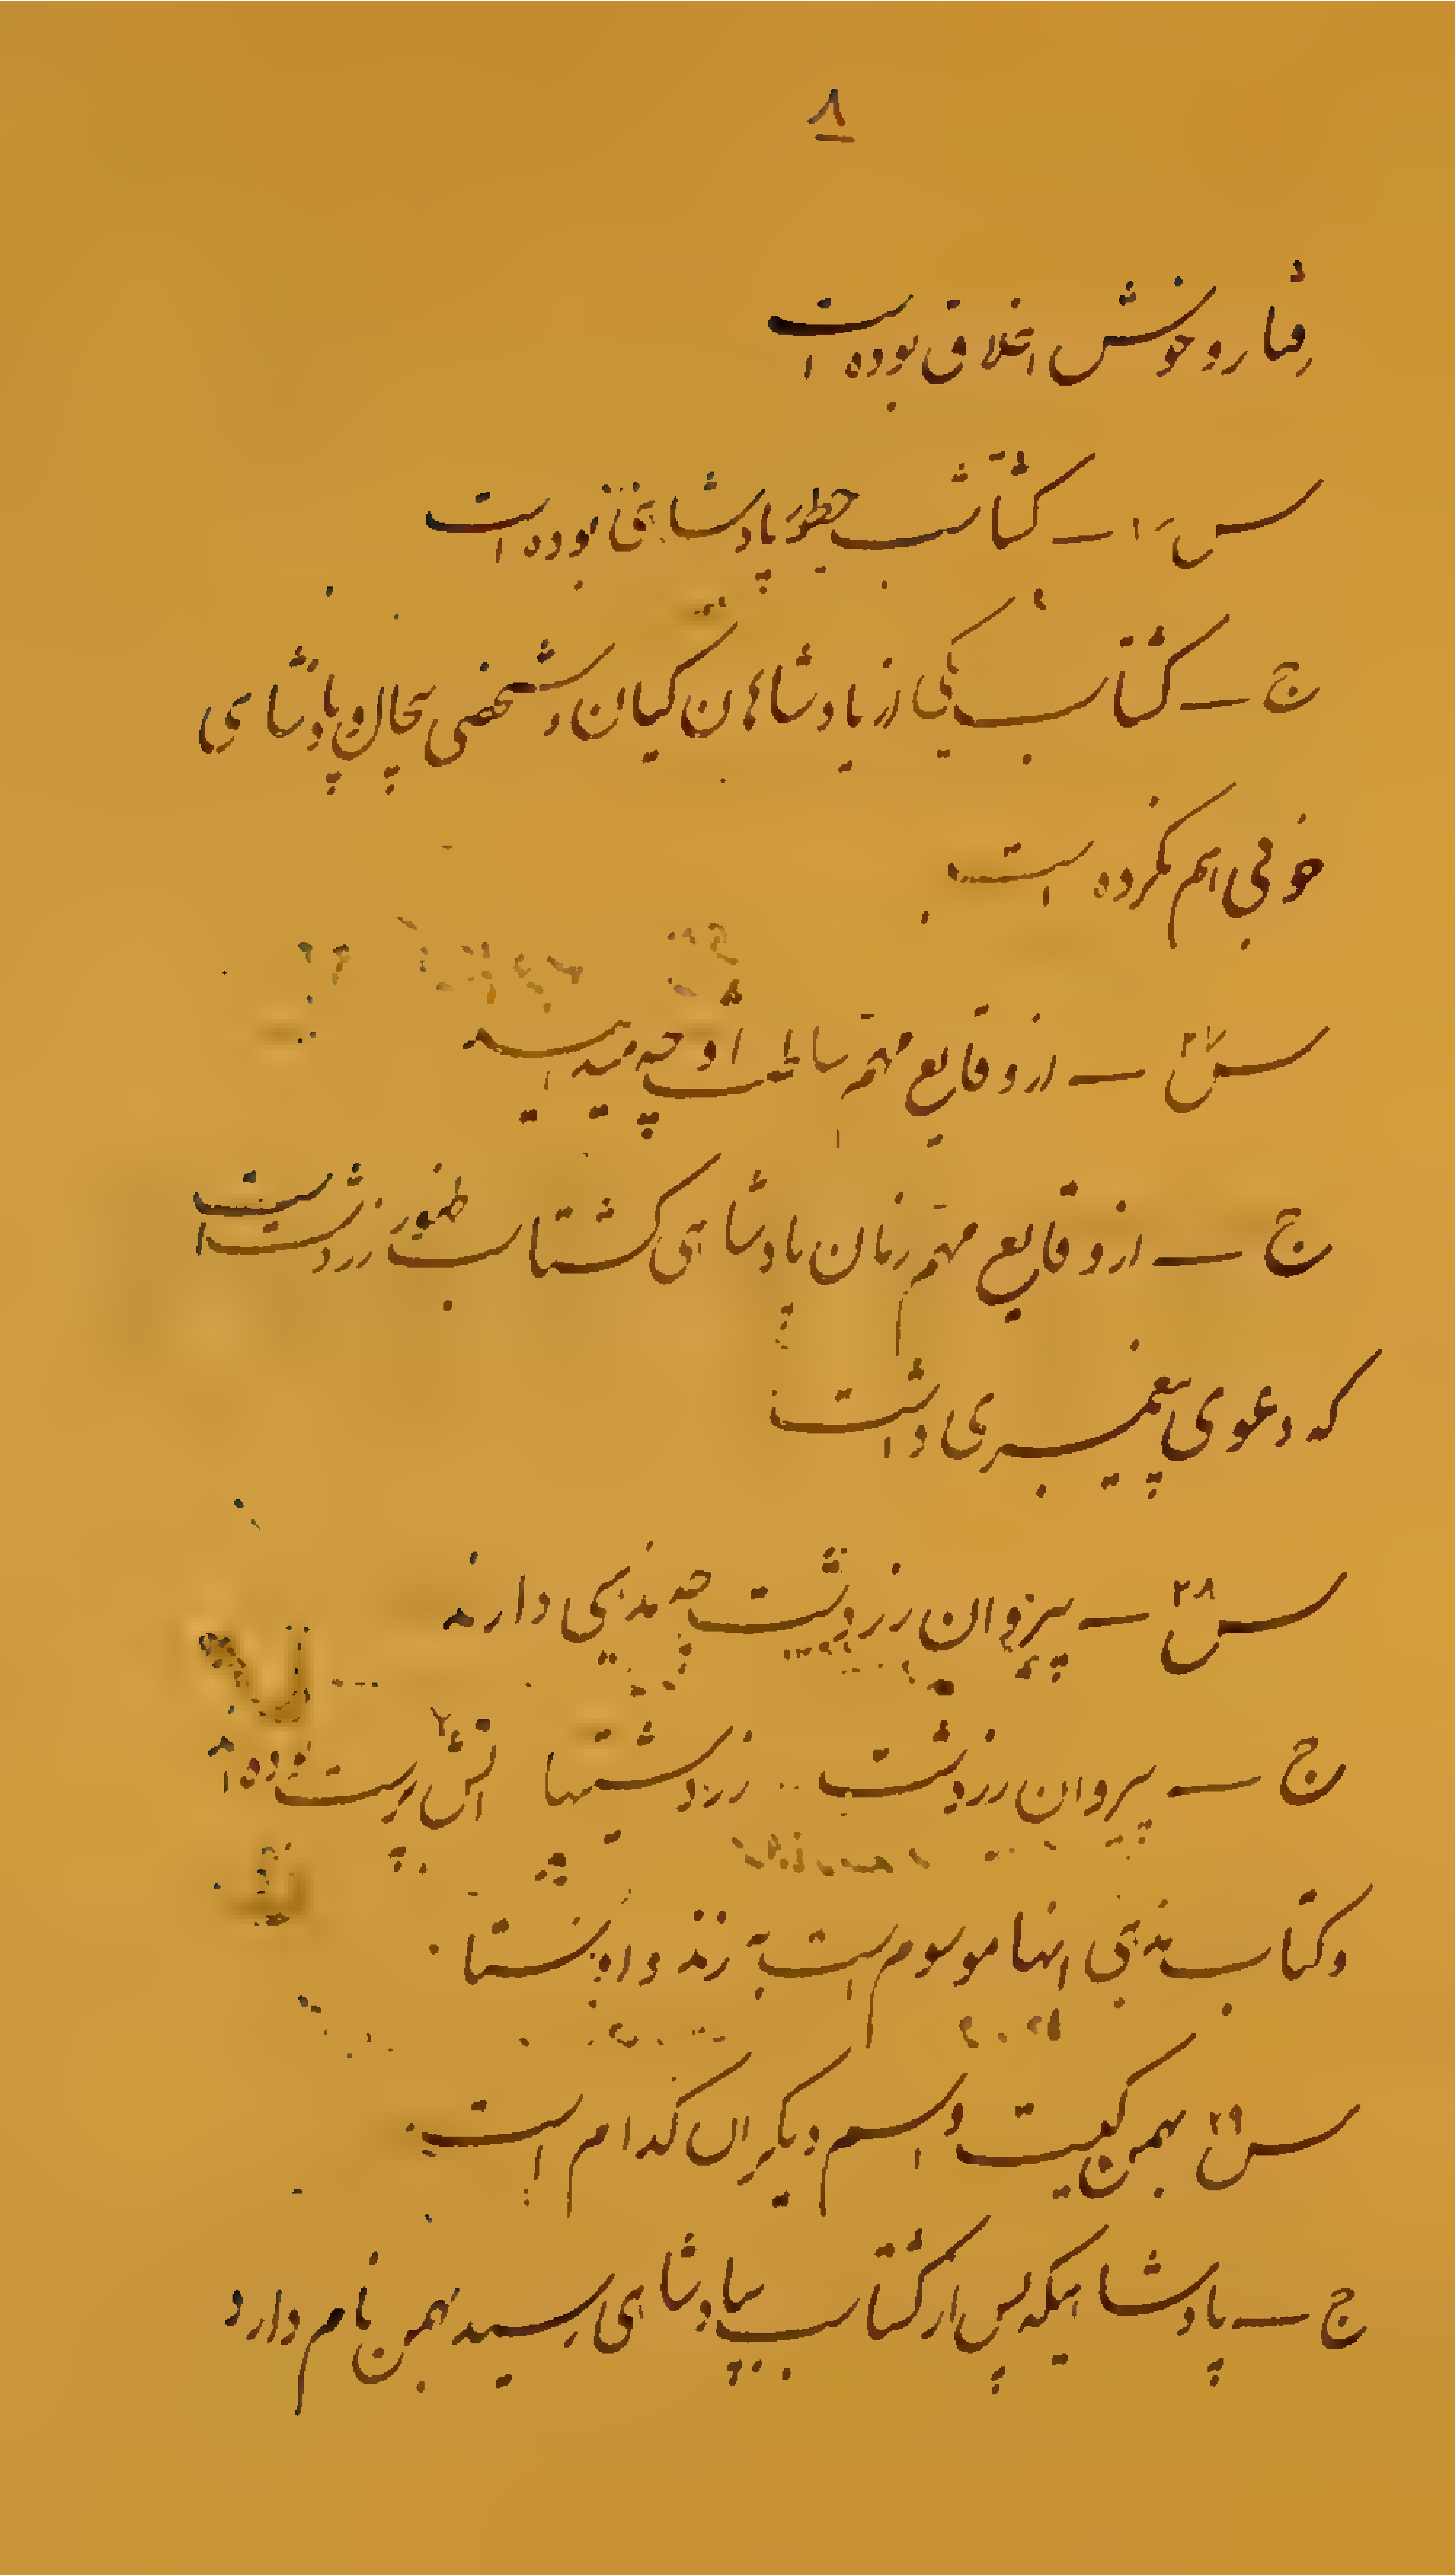 ۸
رفتار و خوش اخلاق بوده است
س — گشتاسب چطور پادشاهی بوده است
ج — گشتاسب یکی از پادشاهان کیان و شخصی بوده پادشاهی
خوبی هم نکرده است
س ۲۷ — از وقایع مهم سلطنت او چه میدانید
ج — از وقایع مهم زمان پادشاهی گشتاسب ظهور زردشت است
که دعوی پیغمبری داشت
س ۲۸ — پیروان زردشت چه مذهبی دارند
ج — پیروان زردشت زردشتیها آتش پرست بوده
و کتاب مذهبی آنها موسوم است به زند و اوستا
س ۲۹ بهمن کیست و اسم دیگر آن کدام است
ج — پادشاهیکه پس از گشتاسب بپادشاهی رسید بهمن نام دارد